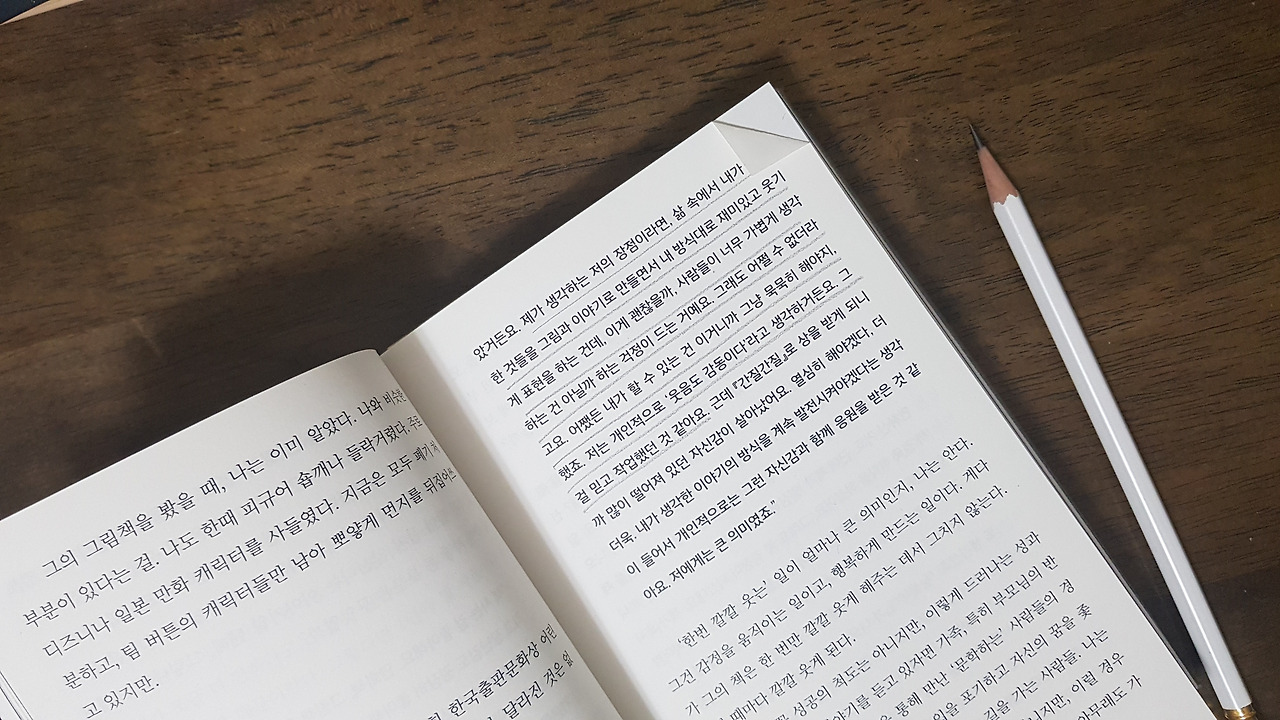 그의 그림책을 봤을 때, 나는 이미 알았다. 나와 비슷한
부분이 있다는 걸. 나도 한때 피규어 숍깨나 들락거렸다. 주로
디즈니나 일본 만화 캐릭터를 사들였다. 지금은 모두 폐기 처
분하고, 팀 버튼의 캐릭터들만 남아 뽀얗게 먼지를 뒤집어쓰
고 있지만.
한국출판문화상 어린
달라진 것은 없
았거든요. 제가 생각하는 저의 장점이라면, 삶 속에서 내가
한 것들을 그림과 이야기로 만들면서 내 방식대로 재미있고 웃기
게 표현을 하는 건데, 이게 괜찮을까, 사람들이 너무 가볍게 생각
하는 건 아닐까 하는 걱정이 드는 거예요. 그래도 어쩔 수 없더라
고요. 어쨌든 내가 할 수 있는 건 이거니까 그냥 묵묵히 해야지,
했죠. 저는 개인적으로 ‘웃음도 감동이다’라고 생각하거든요. 그
걸 믿고 작업했던 것 같아요. 근데 『간질간질』로 상을 받게 되니
까 많이 떨어져 있던 자신감이 살아났어요. 열심히 해야겠다, 더
더욱. 내가 생각한 이야기의 방식을 계속 발전시켜야겠다는 생각
이 들어서 개인적으로는 그런 자신감과 함께 응원을 받은 것 같
아요. 저에게는 큰 의미였죠.”
‘한번 깔깔 웃는’ 일이 얼마나 큰 의미인지, 나는 안다.
그건 감정을 움직이는 일이고, 행복하게 만드는 일이다. 게다
가 그의 책은 한 번만 깔깔 웃게 해주는 데서 그치지 않는다.
때마다 깔깔 웃게 된다.
성공의 척도는 아니지만, 이렇게 드러나는 성과
야기를 듣고 있자면 가족, 특히 부모님의 반
을 통해 만난 ‘문화하는’ 사람들의 경
을 포기하고 자신의 꿈을 좇
길을 가는 사람들. 나는
하지만, 이럴 경우
아무래도 가